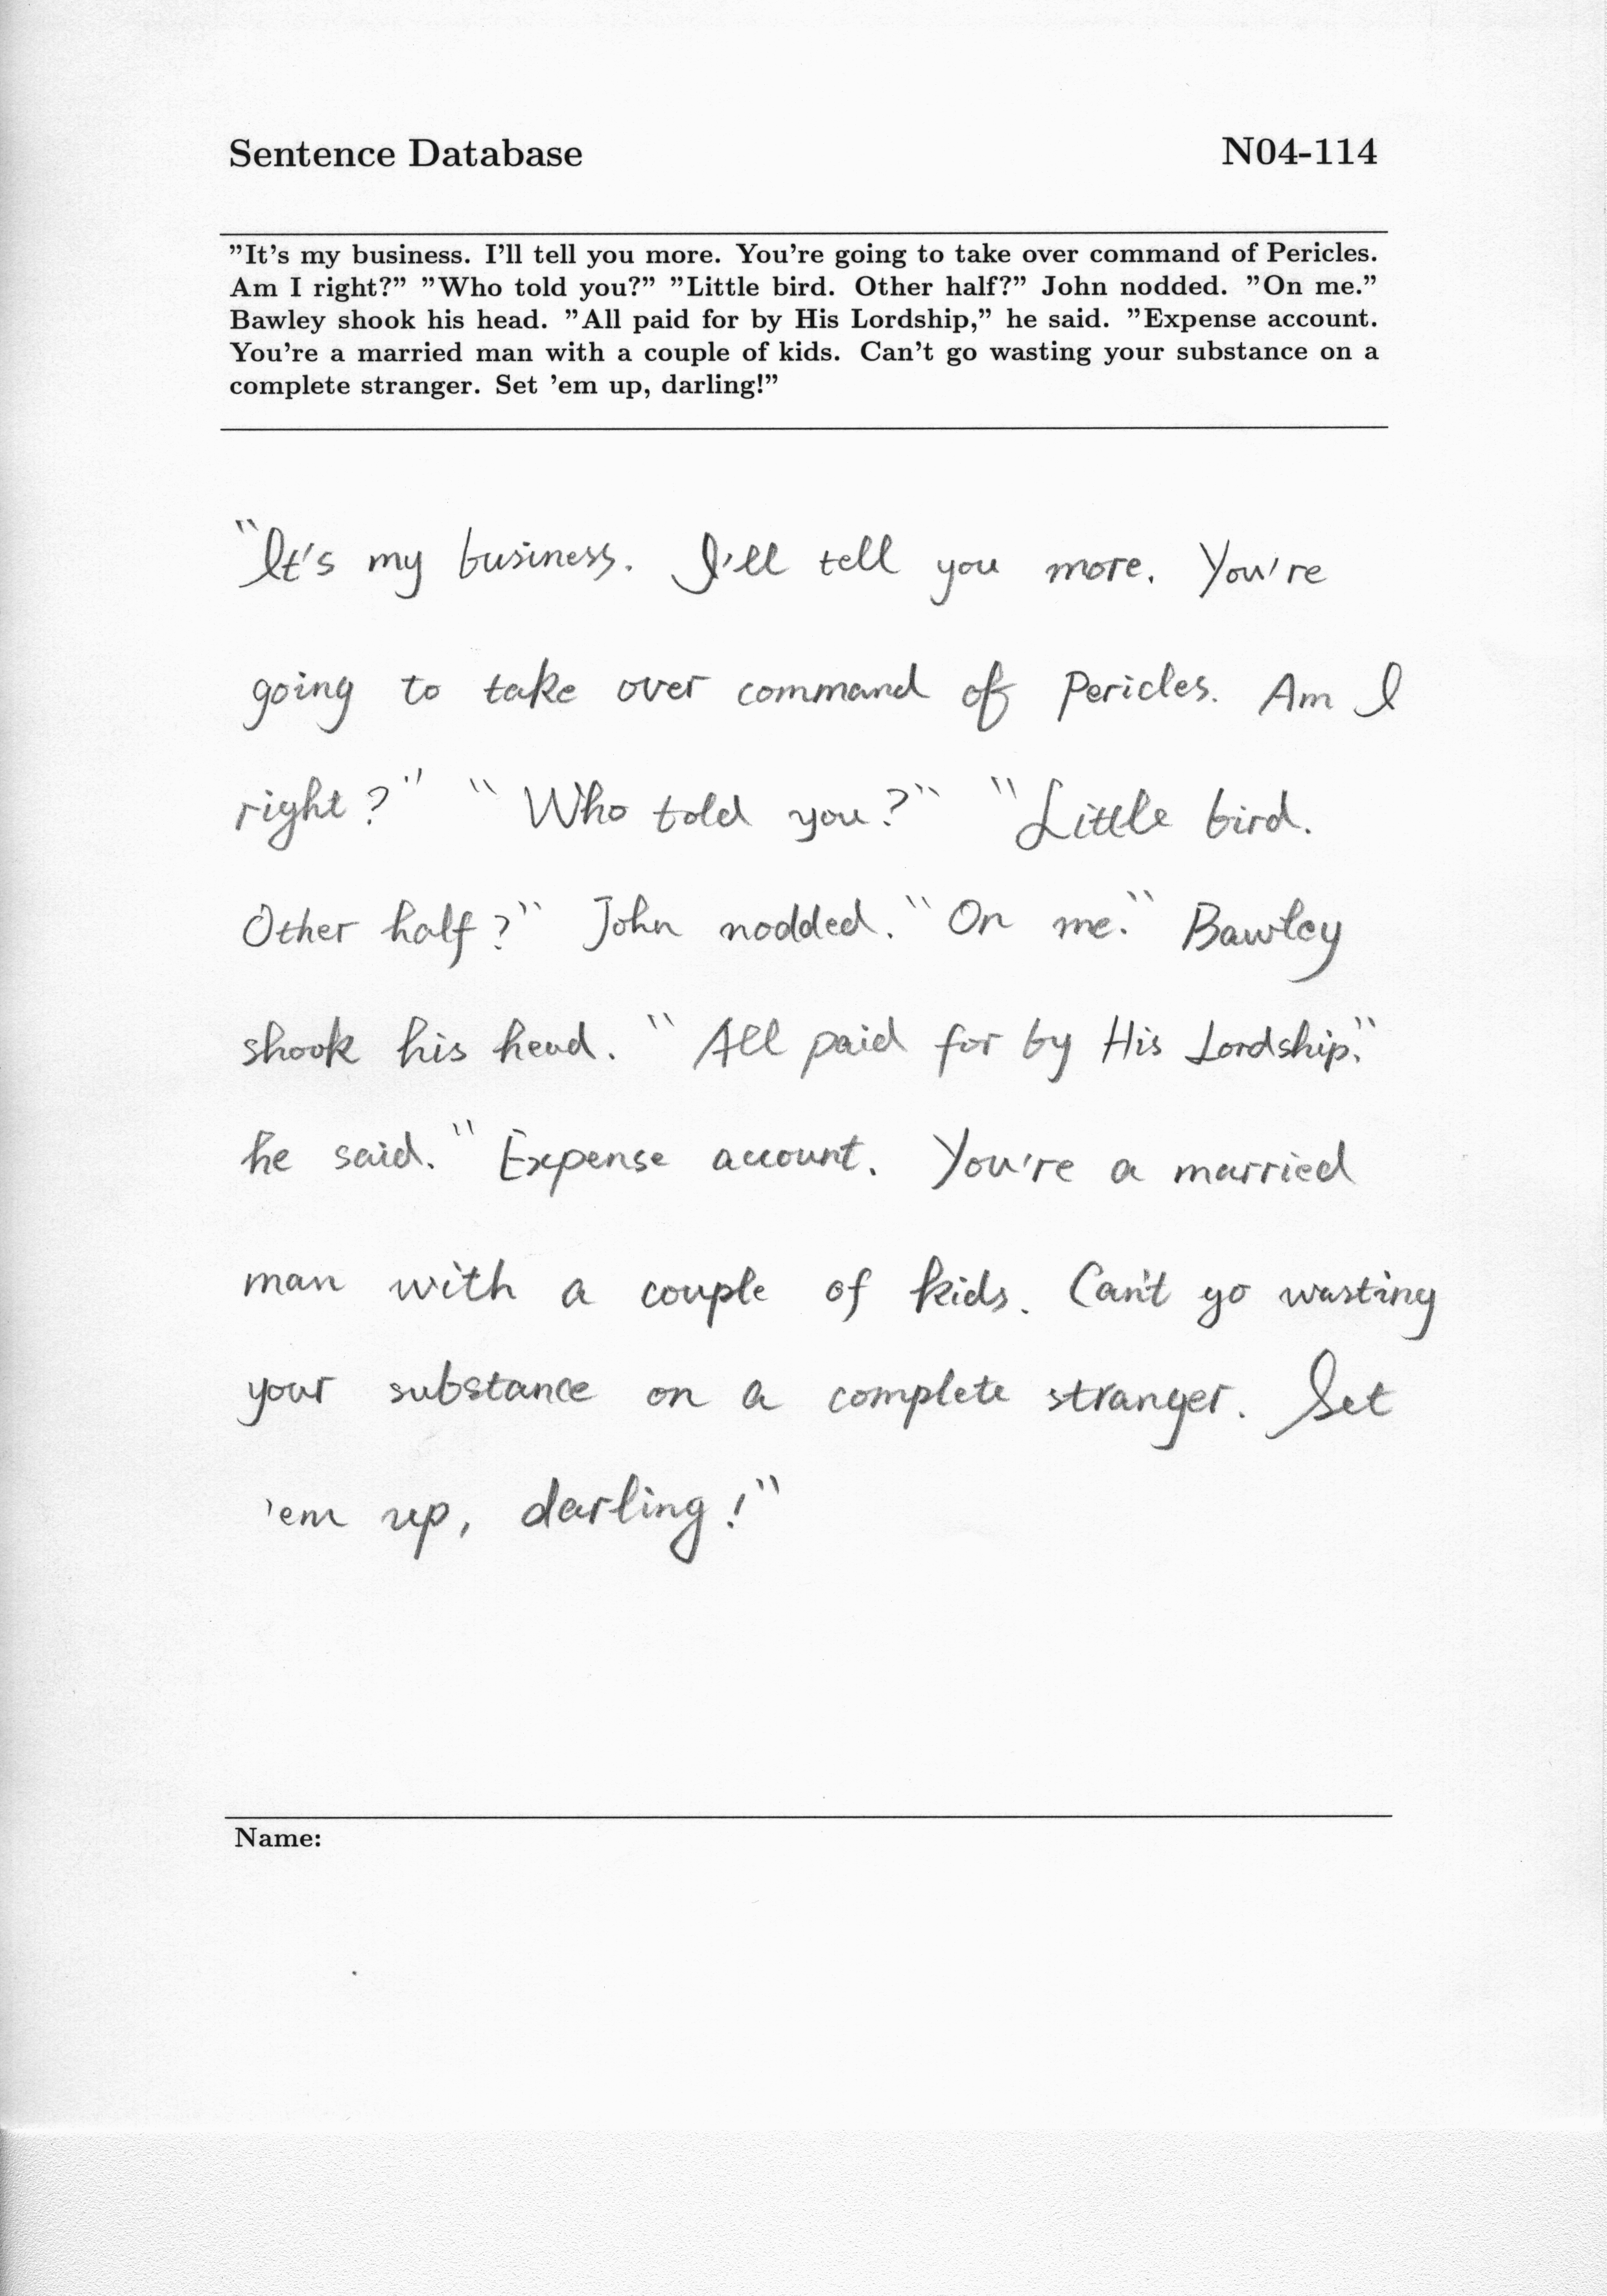 Sentence Database N04-114
”It’s my business. I’ll tell you more. You’re going to take over command of Pericles.
Am I right?” ”Who told you?” ”Little bird. Other half?” John nodded. ”On me.”
Bawley shook his head. ”All paid for by His Lordship,” he said. ”Expense account.
You’re a married man with a couple of kids. Can’t go wasting your substance on a
complete stranger. Set ’em up, darling!”
"It's my business. I'll tell you more. You're
going to take over command of Pericles. Am I
right?" "Who told you?" "Little bird.
Other half?" John nodded. "On me." Bawley
shook his head. "All paid for by His Lordship,"
he said. "Expense account. You're a married
man with a couple of kids. Can't go wasting
your substance on a complete stranger. Set
'em up, darling!"
Name: